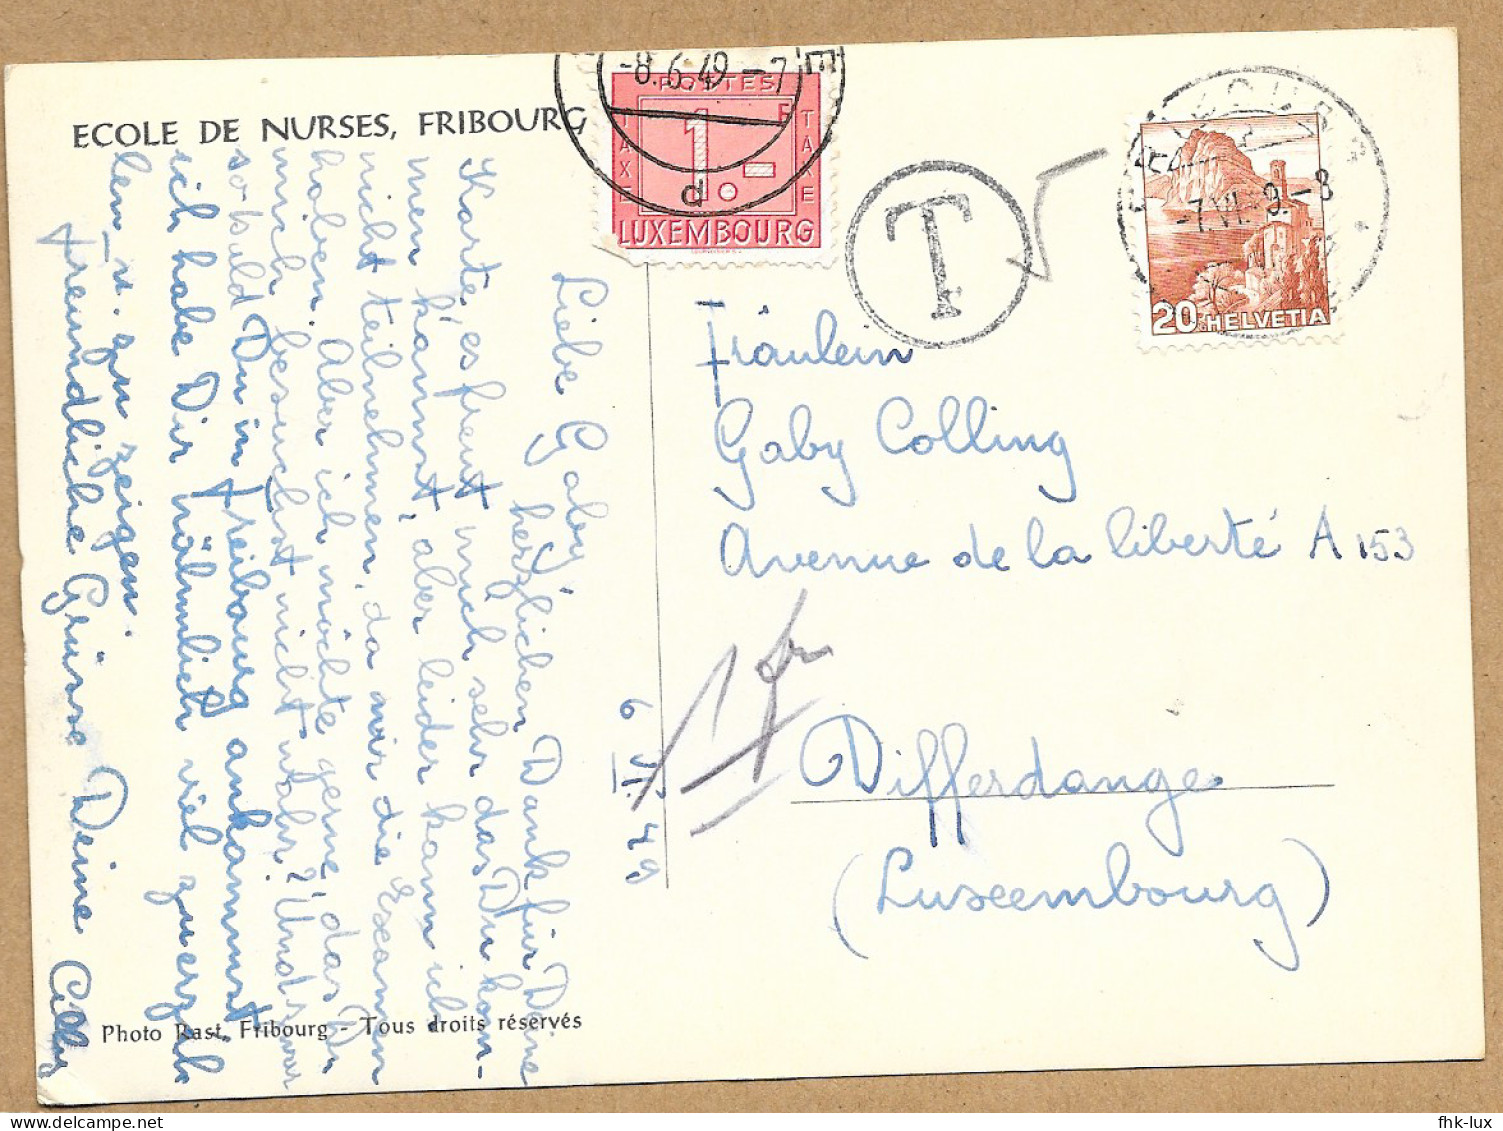 ECOLE DE NURSES, FRIBOURG
Liebe Gaby,
herzlichen Dank für Deine
Karte, es freut mich sehr das Du kom-
men kannst, aber leider kann ich
nicht teilnehmen, da wir die Examen
haben. Aber ich möchte gerne, das Du
mich besuchst nicht wahr? Und zwar
sobald Du in Freibourg ankommst
ich habe Dir nähmlich viel zu erzäh
len u. zu zeigen.
freundliche Grüsse Deine Cilly
6 VI 49
Photo Rast, Fribourg - Tous droits réservés
-8.6.49 - 7
E
d
POSTES
TAXE
1.-
F
TAXE
LUXEMBOURG
T
FRIBOURG
-7.VI.49.-8
20 HELVETIA
Fräulein
Gaby Colling
Avenue de la liberté A 153
1 fr
Differdange
(Luxembourg)
fhk-lux